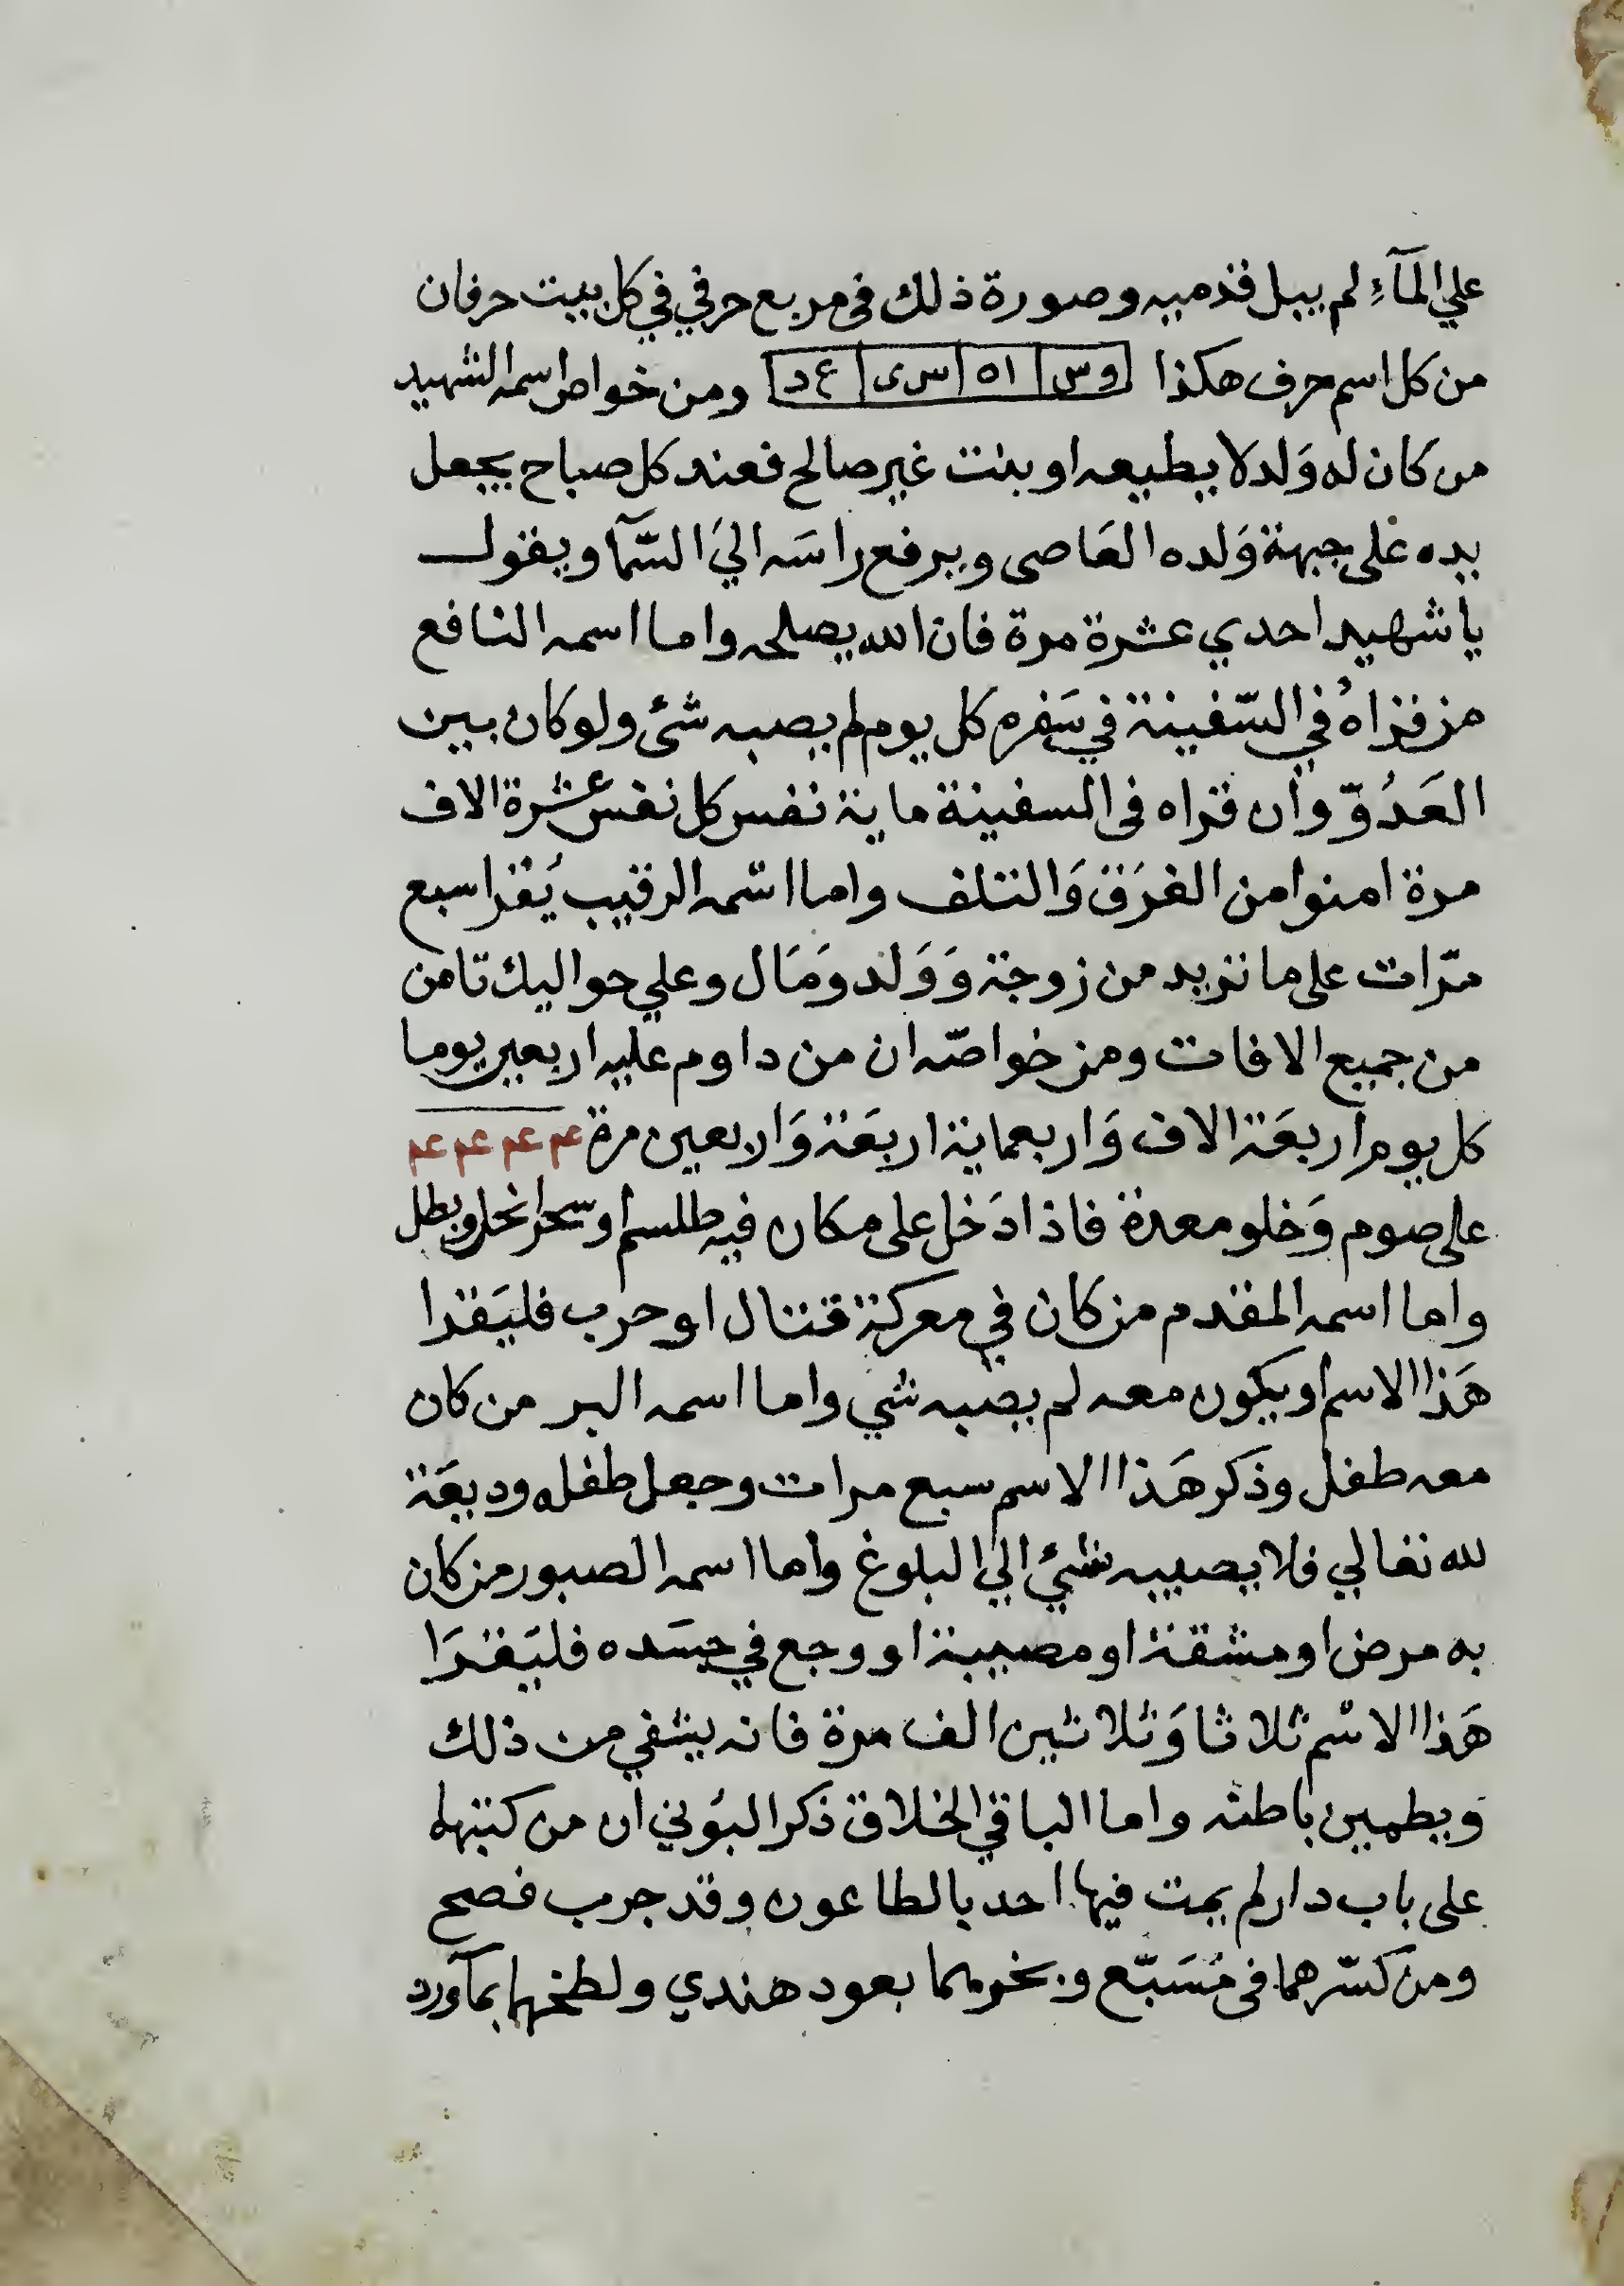 علي المآءِ لم يبل قدميه وصورة ذلك فى مربع حرفي في كل بيت حرفان
من كل اسم حرف هكذا وس اه سى ع د ومن خواص اسمه الشهيد
من كان له وَلد لا يطيعه او بنت غير صالح فعند كل صباح يجعل
يده على جبهة وَلده العَاصى ويرفع راسَه اليَ السّمآ ويقول
يا شهيد احدي عشرة مرة فان الله يصلحه واما اسمه النافع
من قراهُ في السّفينة في سَفره كل يوم لم يصبه شئ ولو كان بين
العَدُوّ وان قراه فى السفينة ماية نفس كل نفس عشرة الاف
مرة امنوا من الغرَق وَالتلف واما اسمه الرقيب يُقرا سبع
مرّات على ما تريد من زوجة وَوَلد وَمَال وعلي حواليك تامن
من جميع الافات ومن خواصّه ان من داوم عليه اربعين يوما
كل يوم اربعَة الاف وَاربعماية اربعَة وَاربعين مرة عم عم عم عم
على صوم وَخلو معدة فاذا دَخل على مكان فيه طلسم او سحر انحل وبطل
واما اسمه المقدم من كان في معركة قتال او حرب فليَقرا
هَذا الاسم او يكون معه لم يصبه شي واما اسمه البر من كان
معه طفل وذكر هَذا الاسم سبع مرات وجعل طفله وديعَة
لله تعالي فلا يصيبه شئ الي البلوغ واما اسمه الصبور من كان
به مرض او مشقة او مصيبة او وجع في جسَده فليَقرَا
هَذا الاسم ثلاثا وَثلاثين الف مرة فانه يشفي من ذلك
ويطمين باطنه واما الباقي الخلاق ذكر البُوني ان من كتبهما
على باب دار لم يمت فيها احد بالطاعون وقد جرب فصح
ومن كسّرهما فى مُسَبّع وبخرهما بعود هندي ولطخهما بمآورد